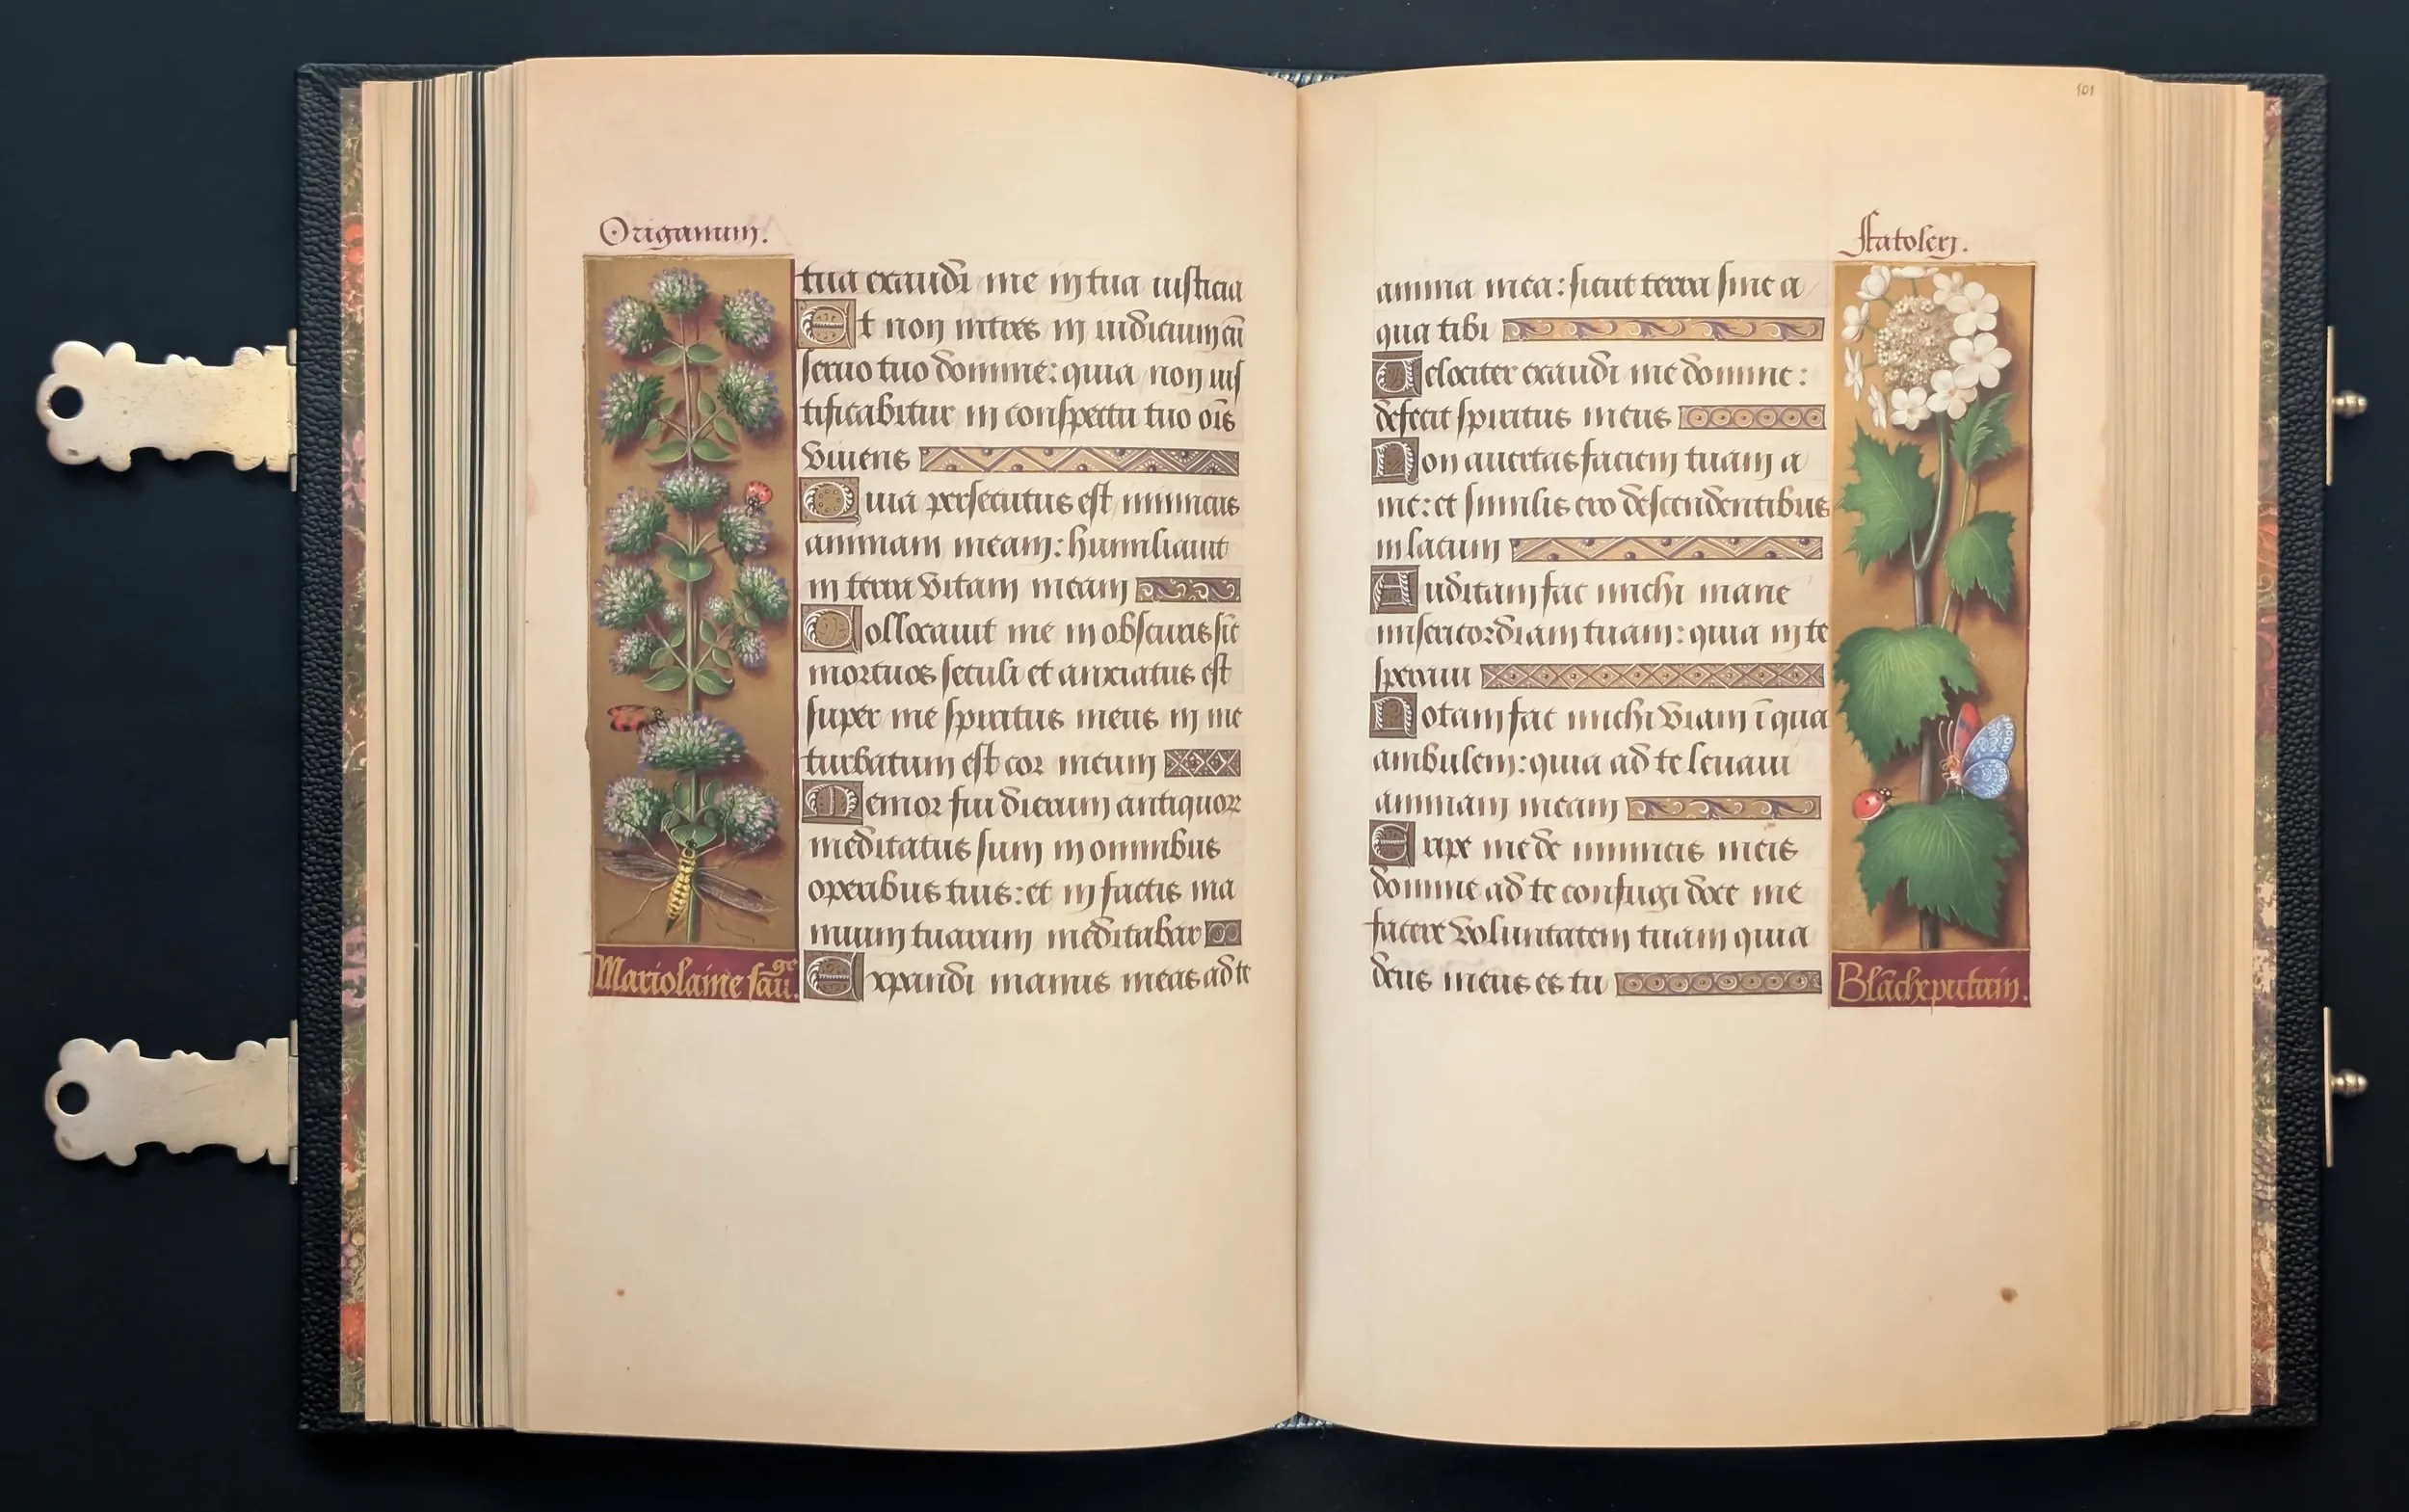 Origanum.
tua exaudi me in tua iusticia
Et non intres in iudicium cū
seruo tuo domine: quia non ius
tificabitur in conspectu tuo oīs
viuens
Quia persecutus est inimicus
animam meam: humiliauit
in terra vitam meam
Collocauit me in obscuris sic
mortuos seculi et anxiatus est
super me spiritus meus in me
turbatum est cor meum
Memor fui dierum antiquoꝝ
meditatus sum in omnibus
operibus tuis: et in factis ma
nuum tuarum meditabar
Expandi manus meas ad te
Mariolaine sauᵍᵉ.
101
anima mea: sicut terra sine a
qua tibi
Velociter exaudi me domine:
defecit spiritus meus
Non auertas faciem tuam a
me: et similis ero descendentibus
in lacum
Auditam fac michi mane
misericordiam tuam: quia in te
speraui
Notam fac michi viam ī qua
ambulem: quia ad te leuaui
animam meam
Eripe me de inimicis meis
domine ad te confugi doce me
facere voluntatem tuam quia
deus meus es tu
Blācheputain.